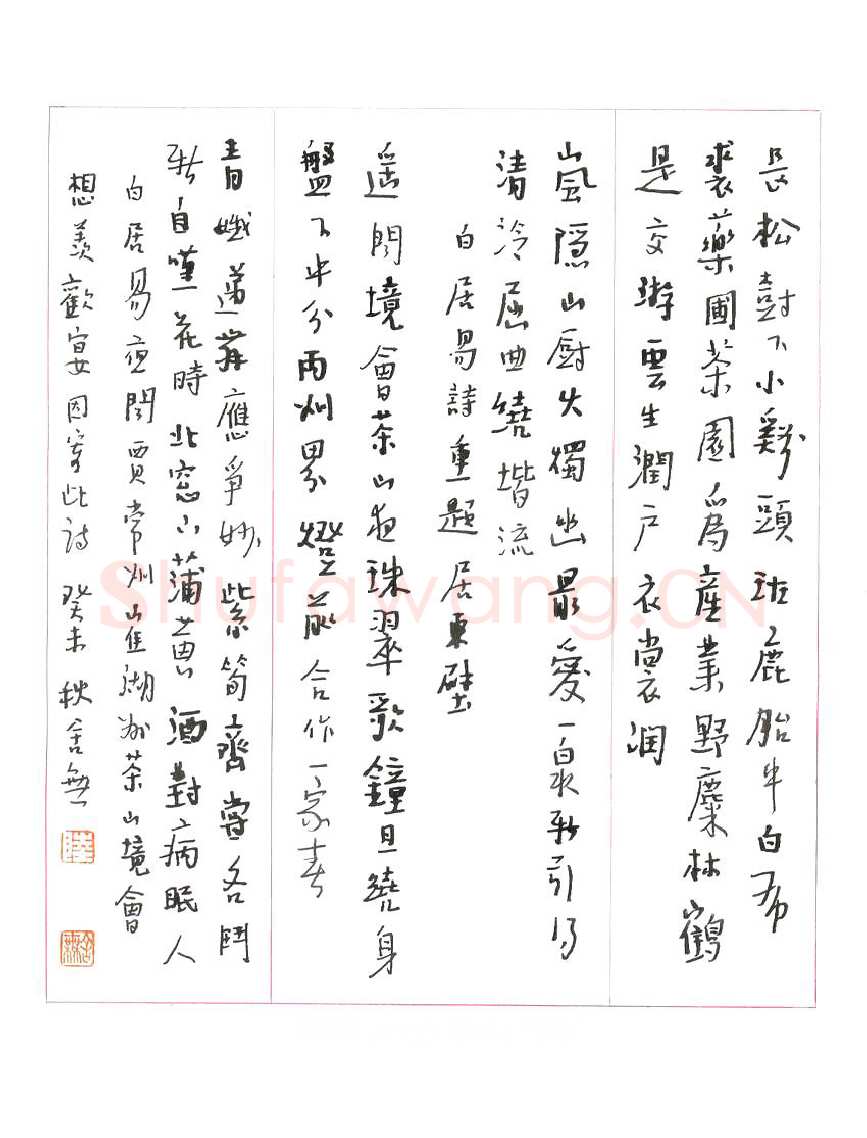 長松樹下小谿頭班鹿胎巾白布
裘藥圃茶園為產業野麋林鶴
是交遊雲生潤戶衣裳潤
嵐隱山廚火燭幽最愛一泉新引得
清泠屈曲繞階流
白居易詩重題居東壁
遥聞境會茶山夜珠翠歌鐘旦繞身
盤下中分兩州界燈前合作一家春
青娥遞舞應爭妙紫筍齊嘗各鬥
新自嘆花時北窗下蒲黃酒對病眠人
白居易夜聞賈常州崔湖州茶山境會
想羨歡宴因寄此詩 癸未秋舍無
Shufawang.CN